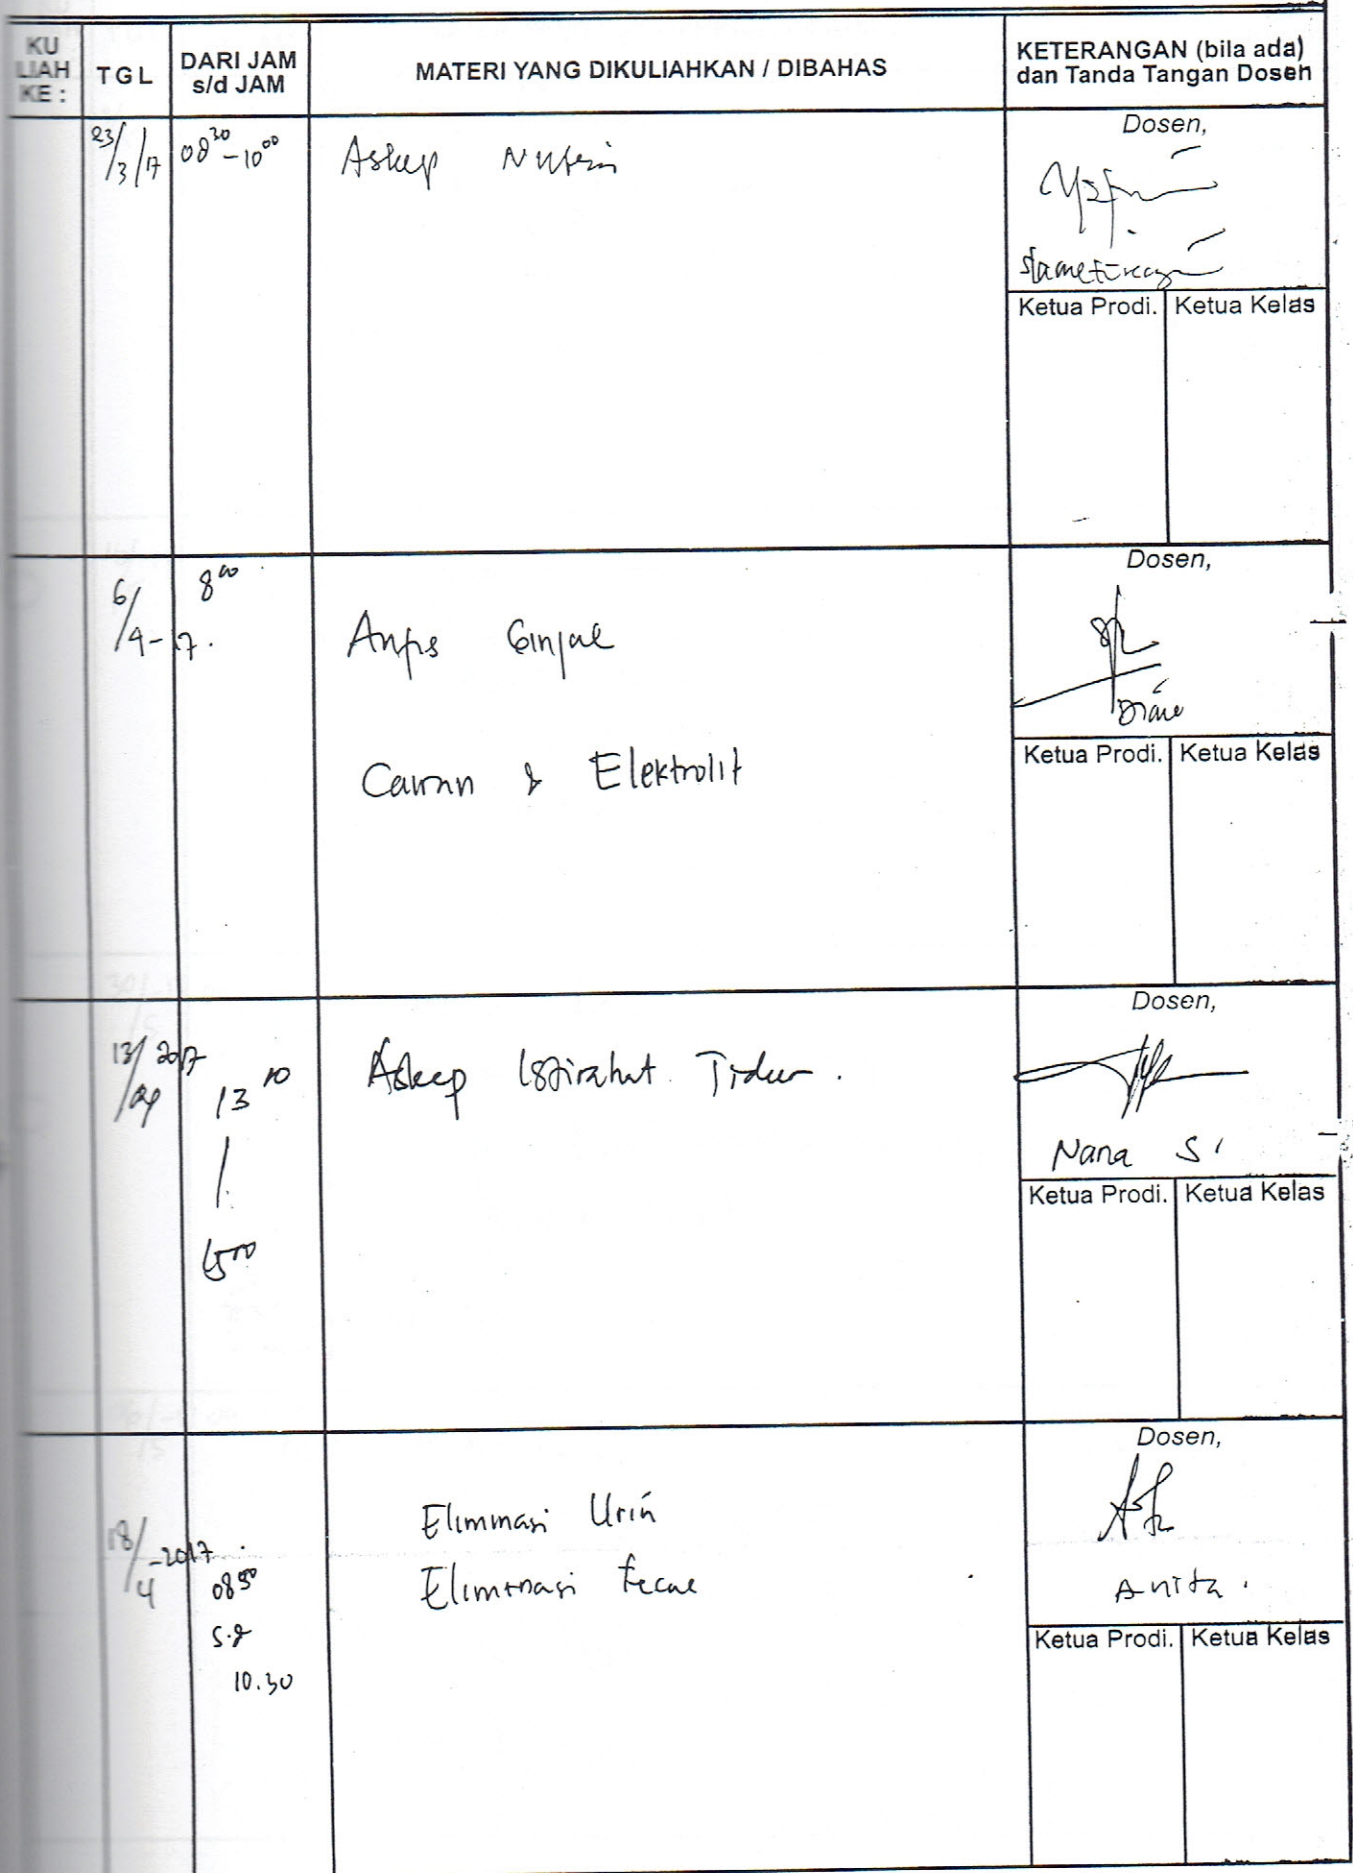 KU
LIAH
KE :
TGL
DARI JAM
s/d JAM
MATERI YANG DIKULIAHKAN / DIBAHAS
KETERANGAN (bila ada)
dan Tanda Tangan Dosen
23/3/17
08³⁰-10⁰⁰
Askep Nutrisi
Dosen,
Ketua Prodi.
Ketua Kelas
6/4-17.
8⁰⁰
Anfis Ginjal
Cairan & Elektrolit
Dosen,
Diane
Ketua Prodi.
Ketua Kelas
13/04 2017
13¹⁰
/
15⁰⁰
Askep Istirahat Tidur.
Dosen,
Nana S.
Ketua Prodi.
Ketua Kelas
18/4-2017.
08⁵⁰
s.d
10.30
Eliminasi Urin
Eliminasi Fecal
Dosen,
Anita.
Ketua Prodi.
Ketua Kelas